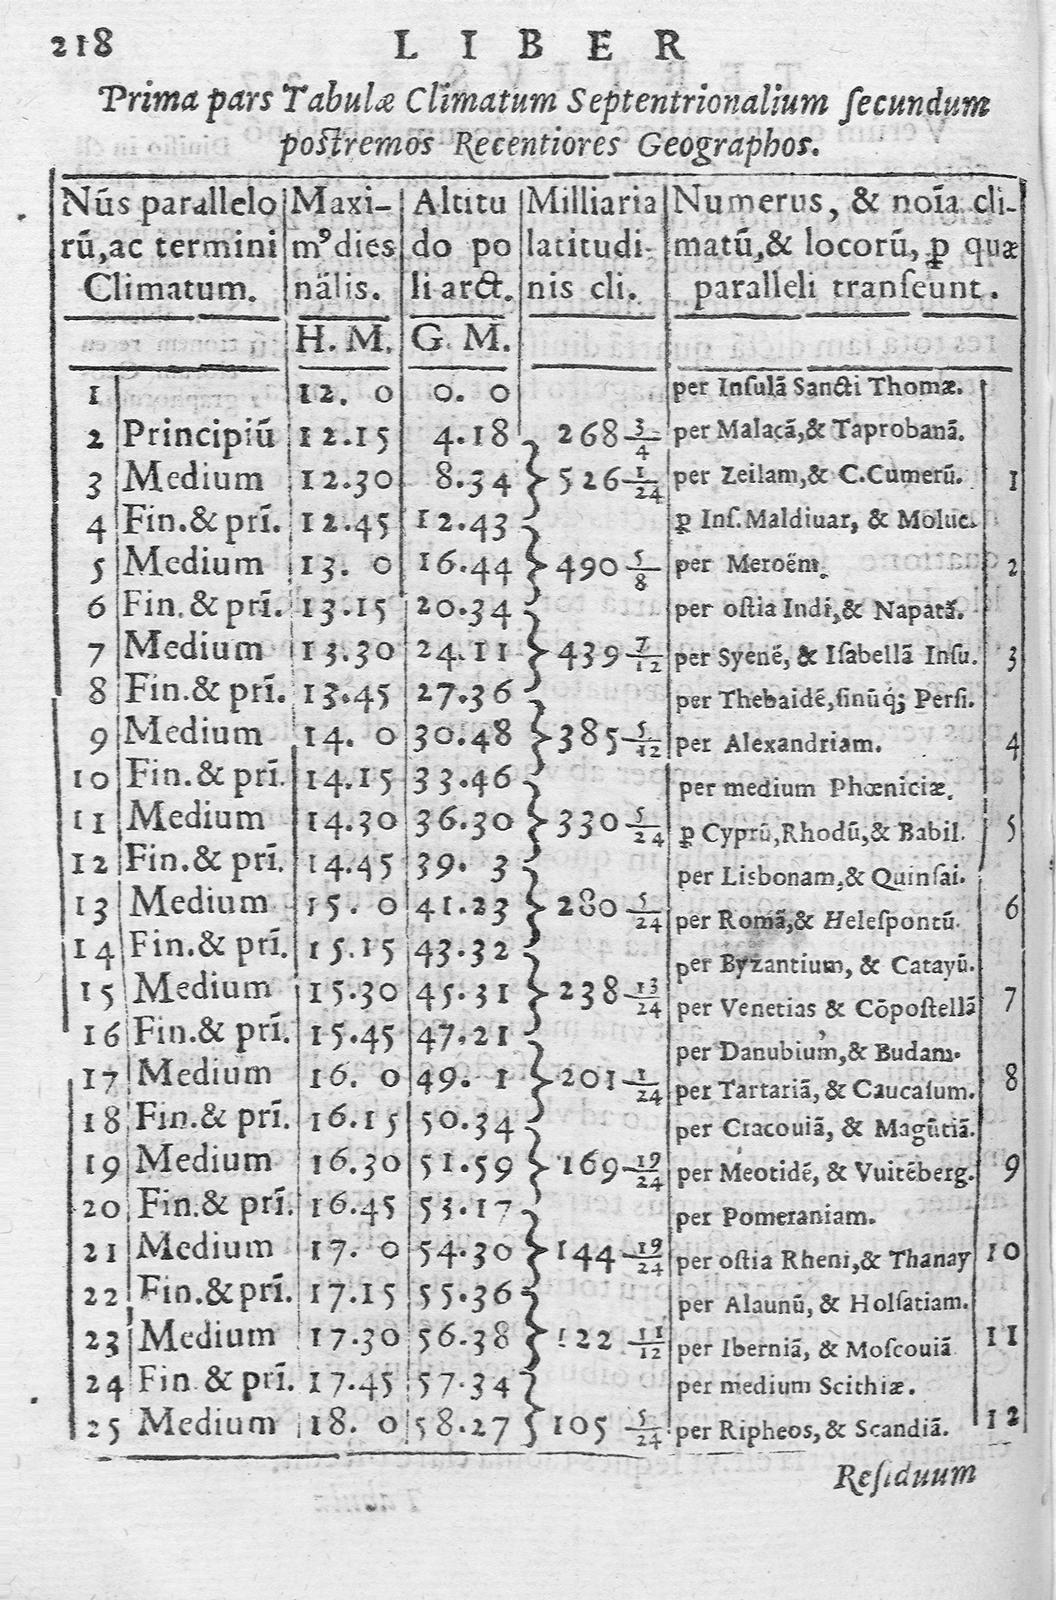 218 LIBER
Prima pars Tabulæ Climatum Septentrionalium ſecundum
poſtremos Recentiores Geographos.
Nūs parallelo Maxi- Altitu Milliaria Numerus, & noīa cli-
rū, ac termini mꝰ dies do po latitudi- matū, & locorū, ꝑ quæ
Climatum. nālis. li arct. nis cli. paralleli tranſeunt.
H. M. G. M.
1 12. 0 0. 0 per Inſulā Sancti Thomæ.
2 Principiū 12.15 4.18 268 3/4 per Malacā, & Taprobanā.
3 Medium 12.30 8.34 526 1/24 per Zeilam, & C.Cumerū. 1
4 Fin.& prī. 12.45 12.43 ꝑ Inſ. Maldiuar, & Moluc.
5 Medium 13. 0 16.44 490 5/8 per Meroēm. 2
6 Fin.& prī. 13.15 20.34 per oſtia Indi, & Napatā.
7 Medium 13.30 24.11 439 7/12 per Syenē, & Iſabellā Inſu. 3
8 Fin.& prī. 13.45 27.36 per Thebaidē, ſinūq; Perſi.
9 Medium 14. 0 30.48 385 5/12 per Alexandriam. 4
10 Fin.& prī. 14.15 33.46 per medium Phœniciæ.
11 Medium 14.30 36.30 330 5/24 ꝑ Cyprū, Rhodū, & Babil. 5
12 Fin.& prī. 14.45 39. 3 per Lisbonam, & Quinſai.
13 Medium 15. 0 41.23 280 5/24 per Romā, & Heleſpontū. 6
14 Fin.& prī. 15.15 43.32 per Byzantium, & Catayū.
15 Medium 15.30 45.31 238 13/24 per Venetias & Cōpoſtellā 7
16 Fin.& prī. 15.45 47.21 per Danubium, & Budam.
17 Medium 16. 0 49. 1 201 1/24 per Tartariā, & Caucaſum. 8
18 Fin.& prī. 16.15 50.34 per Cracouiā, & Magūtiā.
19 Medium 16.30 51.59 169 19/24 per Meotidē, & Vuitēberg. 9
20 Fin.& prī. 16.45 53.17 per Pomeraniam.
21 Medium 17. 0 54.30 144 19/24 per oſtia Rheni, & Thanay 10
22 Fin.& prī. 17.15 55.36 per Alaunū, & Holſatiam.
23 Medium 17.30 56.38 122 11/12 per Iberniā, & Moſcouiā 11
24 Fin & prī. 17.45 57.34 per medium Scithiæ.
25 Medium 18. 0 58.27 105 5/24 per Ripheos, & Scandiā. 12
Reſiduum